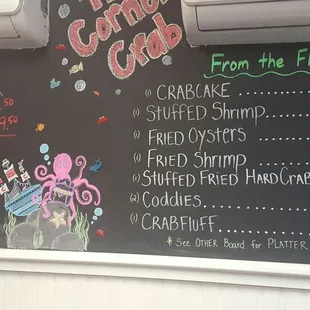 Corner
Crab
From the F
.50
9.50
(1) CRABCAKE ........
(1) STUFFED Shrimp........
(1) FRIED Oysters ......
(1) FRIED Shrimp ......
(1) STUFFED FRIED HARD CRAB
(2) Coddies............
(1) CRABFLUFF............
* See OTHER Board for PLATTER